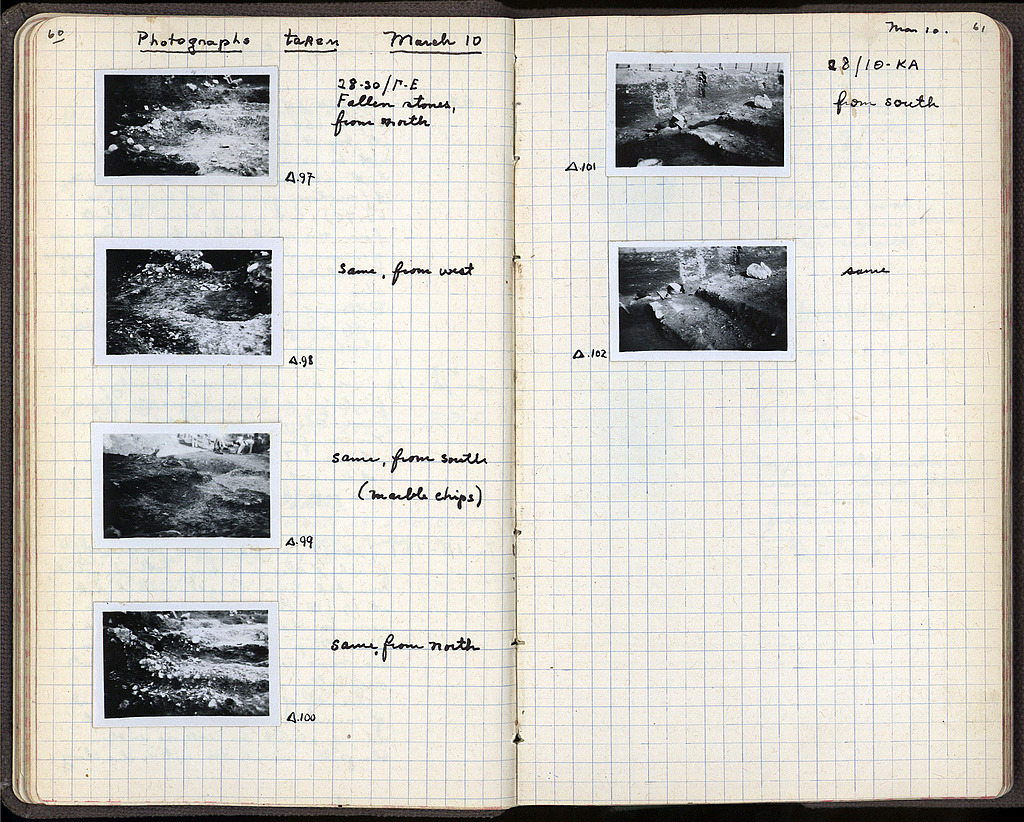 60
Photographs taken March 10
28-30/Γ-E
Fallen stones,
from north
Δ.97
same, from west
Δ.98
same, from south
(marble chips)
Δ.99
same, from north
Δ.100
Mar 10. 61
28/10-KA
from south
Δ.101
same
Δ.102